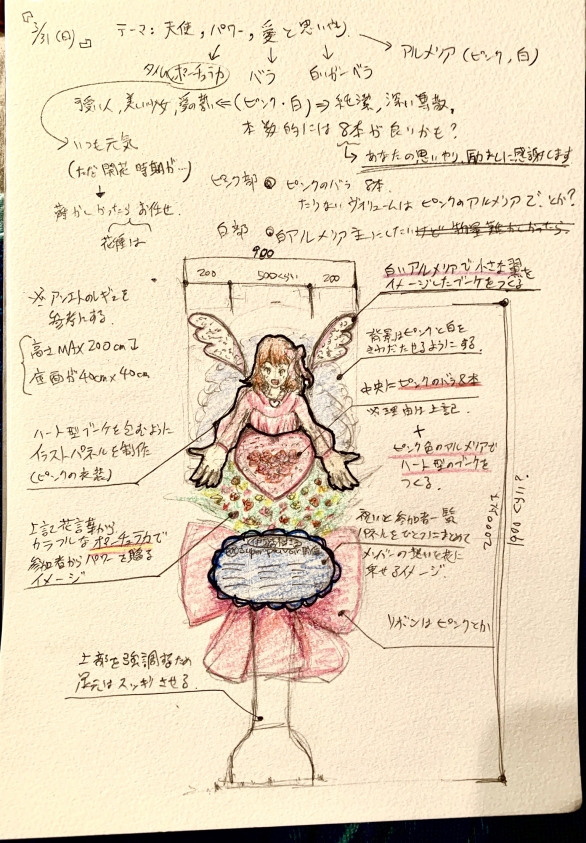 3/31(日)
テーマ：天使，パワー，愛と思いやり
アルメリア（ピンク，白）
ポーチュラカ
バラ
白いガーベラ
可愛い人，美しい少女，愛の誓い⇐（ピンク・白）⇒純潔，深い尊敬，
本数的には8本が良いかも？
あなたの思いやり，励ましに感謝します
いつも元気
（ただ開花時期が…）
難かしかったらお任せ．
花種は
ピンク部 ピンクのバラ 8本．
たりないヴォリュームはピンクのアルメリアで、とか？
白部 白アルメリア主にしたい
900
200 500くらい 200
白いアルメリアで小さな翼を
イメージしたブーケをつくる
※アシストのレギュを
参考にする．
高さMAX200cm以下
底面が40cm×40cm
背景はピンクと白を
きわだたせるようにする．
中央にピンクのバラ8本
※理由は上記．
+
ピンク色のアルメリアで
ハート型のブーケを
つくる．
ハート型ブーケを包むように
イラストパネルを制作
（ピンクの衣装）
上記花言葉から
カラフルなポーチュラカで
参加者からパワーを贈る
イメージ
祝いと参加者一覧
パネルをひとつにまとめて
メンバーの想いを共に
乗せるイメージ．
リボンはピンクとか
上部を強調するため
足元はスッキリさせる．
1900くらい？
2000以下